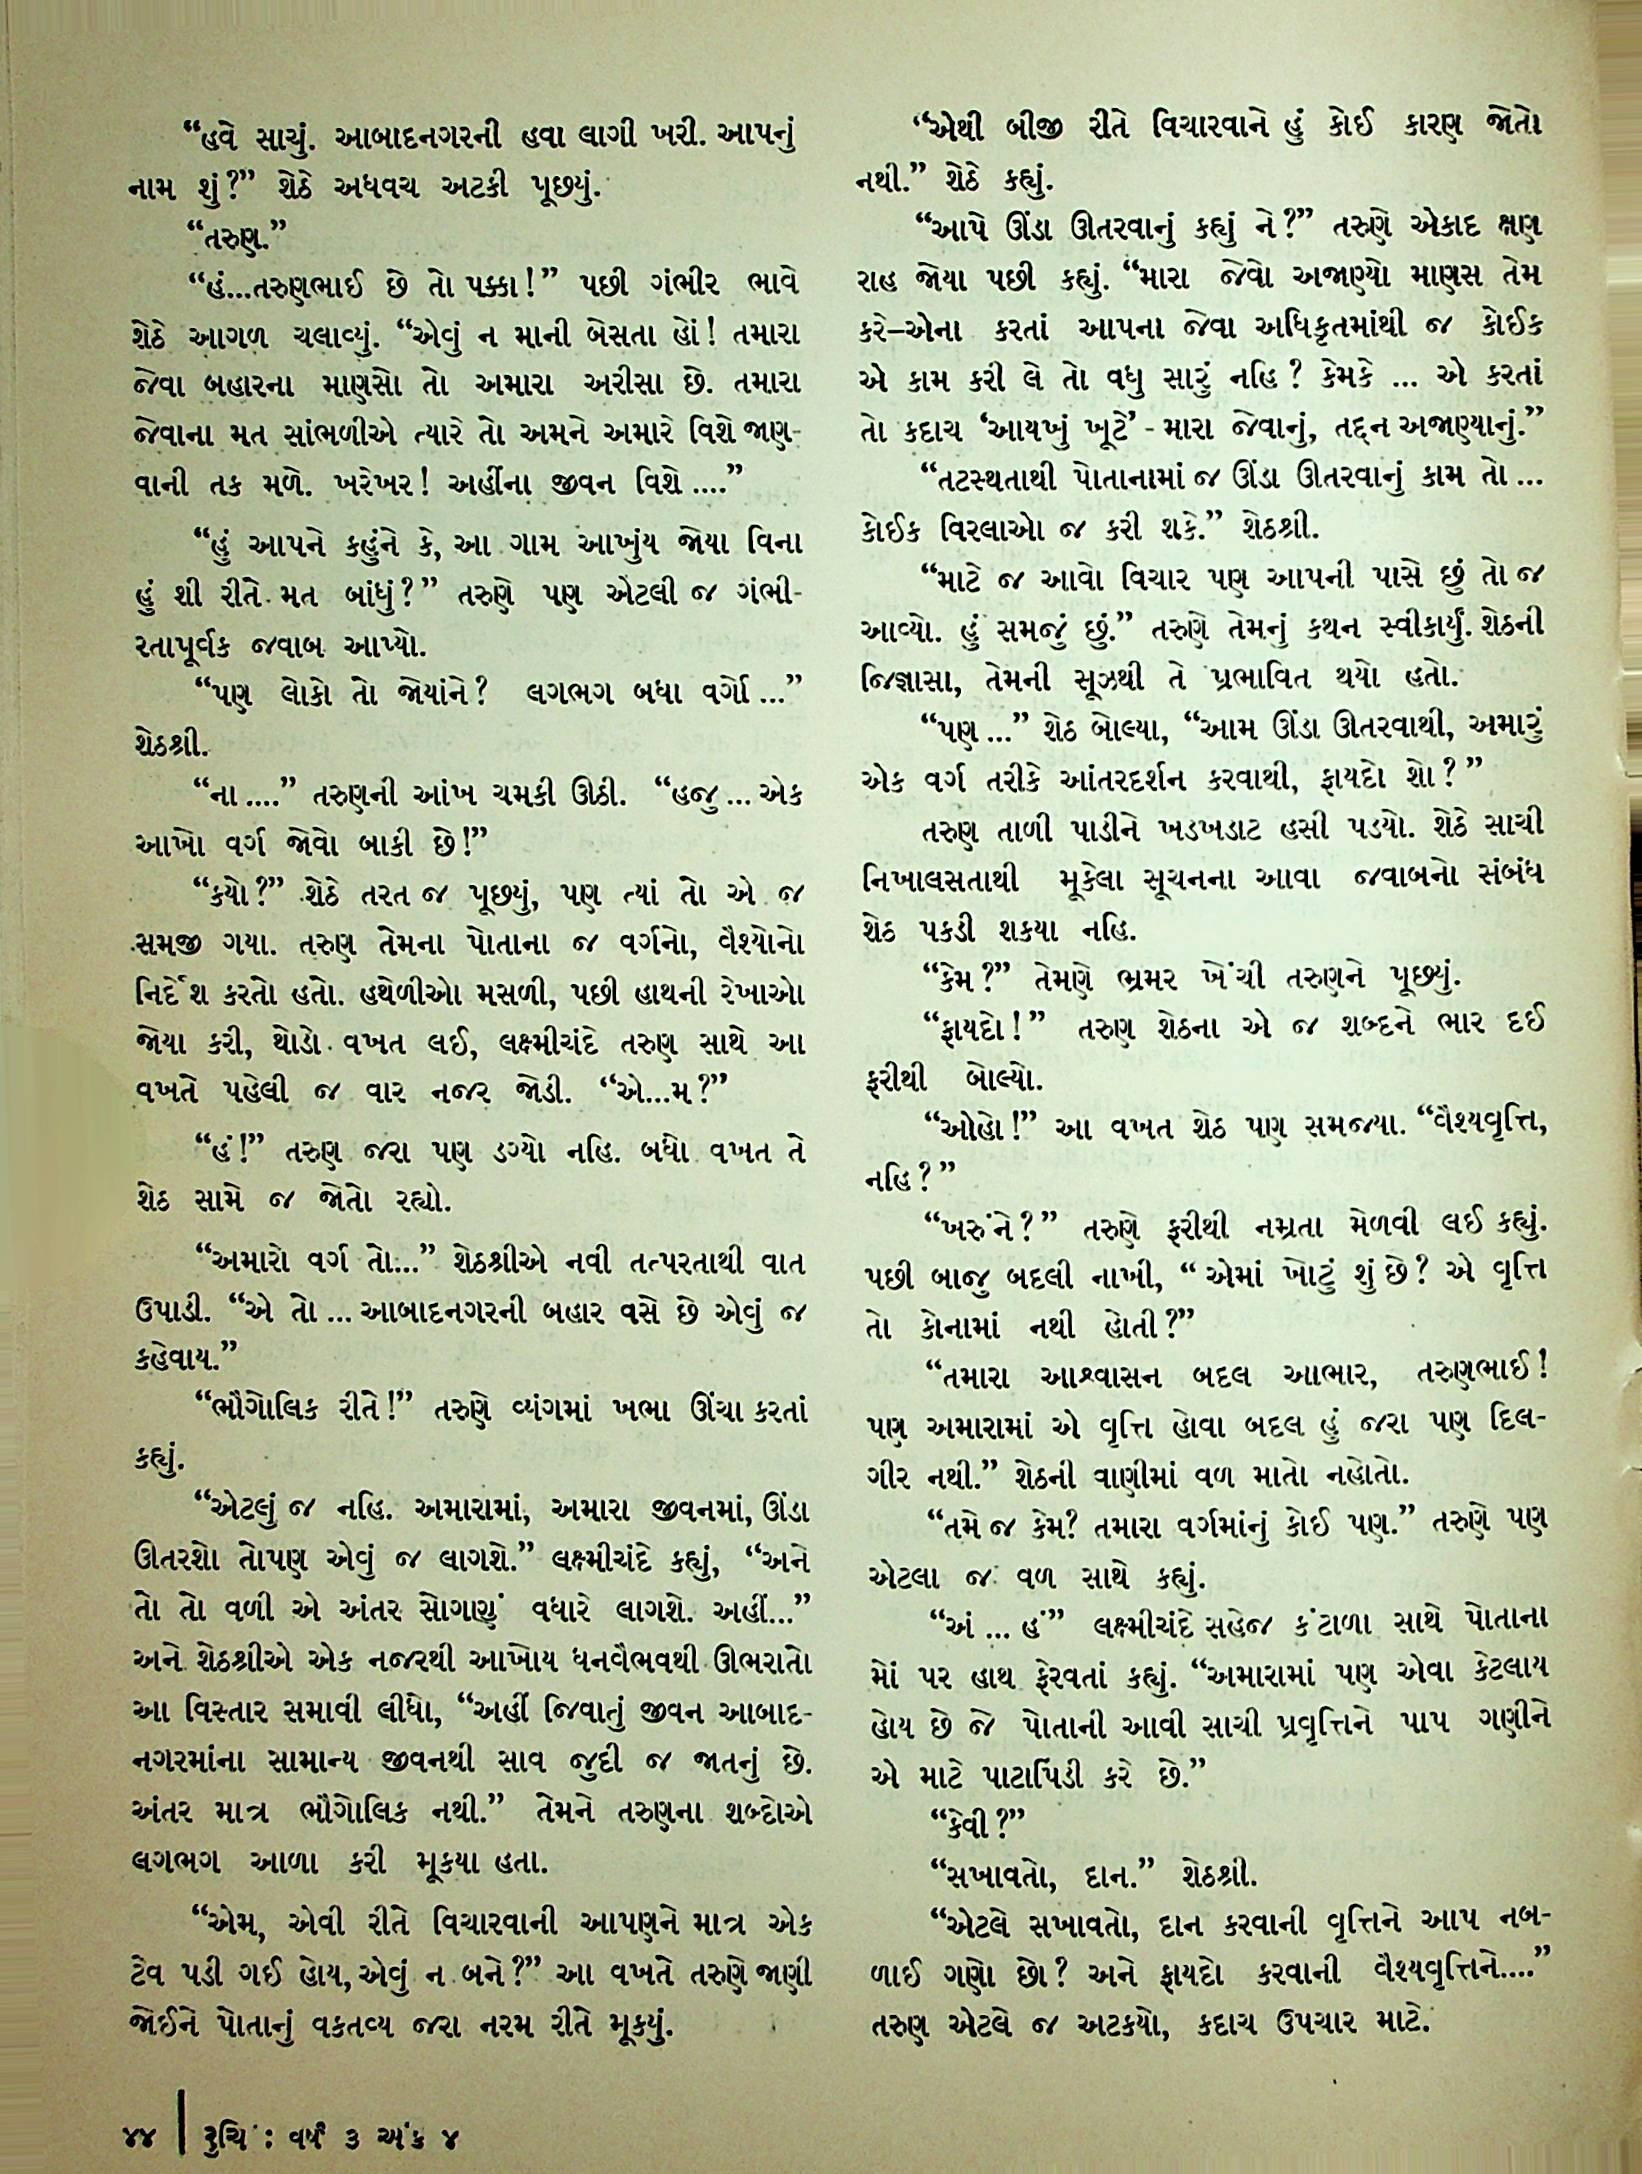 “હવે સાચું. આબાદનગરની હવા લાગી ખરી. આપનું
નામ શું?” શેઠે અધવચ અટકી પૂછયું.
“તરુણ.”
“હં...તરુણભાઈ છે તો પક્કા!” પછી ગંભીર ભાવે
શેઠે આગળ ચલાવ્યું. “એવું ન માની બેસતા હોં! તમારા
જેવા બહારના માણસો તો અમારા અરીસા છે. તમારા
જેવાના મત સાંભળીએ ત્યારે તો અમને અમારે વિશે જાણ-
વાની તક મળે. ખરેખર! અહીંના જીવન વિશે ....”
“હું આપને કહુંને કે, આ ગામ આખુંય જોયા વિના
હું શી રીતે મત બાંધું?” તરુણે પણ એટલી જ ગંભી-
રતાપૂર્વક જવાબ આપ્યો.
“પણ લોકો તો જોયાંને? લગભગ બધા વર્ગો ...”
શેઠશ્રી.
“ના ....” તરુણની આંખ ચમકી ઊઠી. “હજુ ... એક
આખો વર્ગ જોવો બાકી છે!”
“કયો?” શેઠે તરત જ પૂછયું, પણ ત્યાં તો એ જ
સમજી ગયા. તરુણ તેમના પોતાના જ વર્ગનો, વૈશ્યોનો
નિર્દેશ કરતો હતો. હથેળીઓ મસળી, પછી હાથની રેખાઓ
જોયા કરી, થોડો વખત લઈ, લક્ષ્મીચંદે તરુણ સાથે આ
વખતે પહેલી જ વાર નજર જોડી. “એ...મ?”
“હં!” તરુણ જરા પણ ડગ્યો નહિ. બધો વખત તે
શેઠ સામે જ જોતો રહ્યો.
“અમારો વર્ગ તો...” શેઠશ્રીએ નવી તત્પરતાથી વાત
ઉપાડી. “એ તો ... આબાદનગરની બહાર વસે છે એવું જ
કહેવાય.”
“ભૌગોલિક રીતે!” તરુણે વ્યંગમાં ખભા ઊંચા કરતાં
કહ્યું.
“એટલું જ નહિ. અમારામાં, અમારા જીવનમાં, ઊંડા
ઊતરશો તોપણ એવું જ લાગશે.” લક્ષ્મીચંદે કહ્યું, “અને
તો તો વળી એ અંતર સોગણું વધારે લાગશે. અહીં...”
અને શેઠશ્રીએ એક નજરથી આખોય ધનવૈભવથી ઊભરાતો
આ વિસ્તાર સમાવી લીધો, “અહીં જિવાતું જીવન આબાદ-
નગરમાંના સામાન્ય જીવનથી સાવ જુદી જ જાતનું છે.
અંતર માત્ર ભૌગોલિક નથી.” તેમને તરુણના શબ્દોએ
લગભગ આળા કરી મૂકયા હતા.
“એમ, એવી રીતે વિચારવાની આપણને માત્ર એક
ટેવ પડી ગઈ હોય, એવું ન બને?” આ વખતે તરુણે જાણી
જોઈને પોતાનું વકતવ્ય જરા નરમ રીતે મૂકયું.
“એથી બીજી રીતે વિચારવાને હું કોઈ કારણ જોતો
નથી.” શેઠે કહ્યું.
“આપે ઊંડા ઊતરવાનું કહ્યું ને?” તરુણે એકાદ ક્ષણ
રાહ જોયા પછી કહ્યું. “મારા જેવો અજાણ્યો માણસ તેમ
કરે–એના કરતાં આપના જેવા અધિકૃતમાંથી જ કોઈક
એ કામ કરી લે તો વધુ સારું નહિ? કેમકે ... એ કરતાં
તો કદાચ ‘આયખું ખૂટે’ - મારા જેવાનું, તદ્દન અજાણ્યાનું.”
“તટસ્થતાથી પોતાનામાં જ ઊંડા ઊતરવાનું કામ તો ...
કોઈક વિરલાઓ જ કરી શકે.” શેઠશ્રી.
“માટે જ આવો વિચાર પણ આપની પાસે છું તો જ
આવ્યો. હું સમજું છું.” તરુણે તેમનું કથન સ્વીકાર્યું. શેઠની
જિજ્ઞાસા, તેમની સૂઝથી તે પ્રભાવિત થયો હતો.
“પણ ...” શેઠ બોલ્યા, “આમ ઊંડા ઊતરવાથી, અમારું
એક વર્ગ તરીકે આંતરદર્શન કરવાથી, ફાયદો શો?”
તરુણ તાળી પાડીને ખડખડાટ હસી પડયો. શેઠે સાચી
નિખાલસતાથી મૂકેલા સૂચનના આવા જવાબનો સંબંધ
શેઠ પકડી શકયા નહિ.
“કેમ?” તેમણે ભ્રમર ખેંચી તરુણને પૂછયું.
“ફાયદો!” તરુણ શેઠના એ જ શબ્દને ભાર દઈ
ફરીથી બોલ્યો.
“ઓહો!” આ વખત શેઠ પણ સમજયા. “વૈશ્યવૃત્તિ,
નહિ?”
“ખરુંને?” તરુણે ફરીથી નમ્રતા મેળવી લઈ કહ્યું.
પછી બાજુ બદલી નાખી, “એમાં ખોટું શું છે? એ વૃત્તિ
તો કોનામાં નથી હોતી?”
“તમારા આશ્વાસન બદલ આભાર, તરુણભાઈ!
પણ અમારામાં એ વૃત્તિ હોવા બદલ હું જરા પણ દિલ-
ગીર નથી.” શેઠની વાણીમાં વળ માતો નહોતો.
“તમે જ કેમ? તમારા વર્ગમાંનું કોઈ પણ.” તરુણે પણ
એટલા જ વળ સાથે કહ્યું.
“અં ... હં” લક્ષ્મીચંદે સહેજ કંટાળા સાથે પોતાના
મોં પર હાથ ફેરવતાં કહ્યું. “અમારામાં પણ એવા કેટલાય
હોય છે જે પોતાની આવી સાચી પ્રવૃત્તિને પાપ ગણીને
એ માટે પાટાપિંડી કરે છે.”
“કેવી?”
“સખાવતો, દાન.” શેઠશ્રી.
“એટલે સખાવતો, દાન કરવાની વૃત્તિને આપ નબ-
ળાઈ ગણો છો? અને ફાયદો કરવાની વૈશ્યવૃત્તિને....”
તરુણ એટલે જ અટકયો, કદાચ ઉપચાર માટે.
૪૪ | રુચિ : વર્ષ ૩ અંક ૪